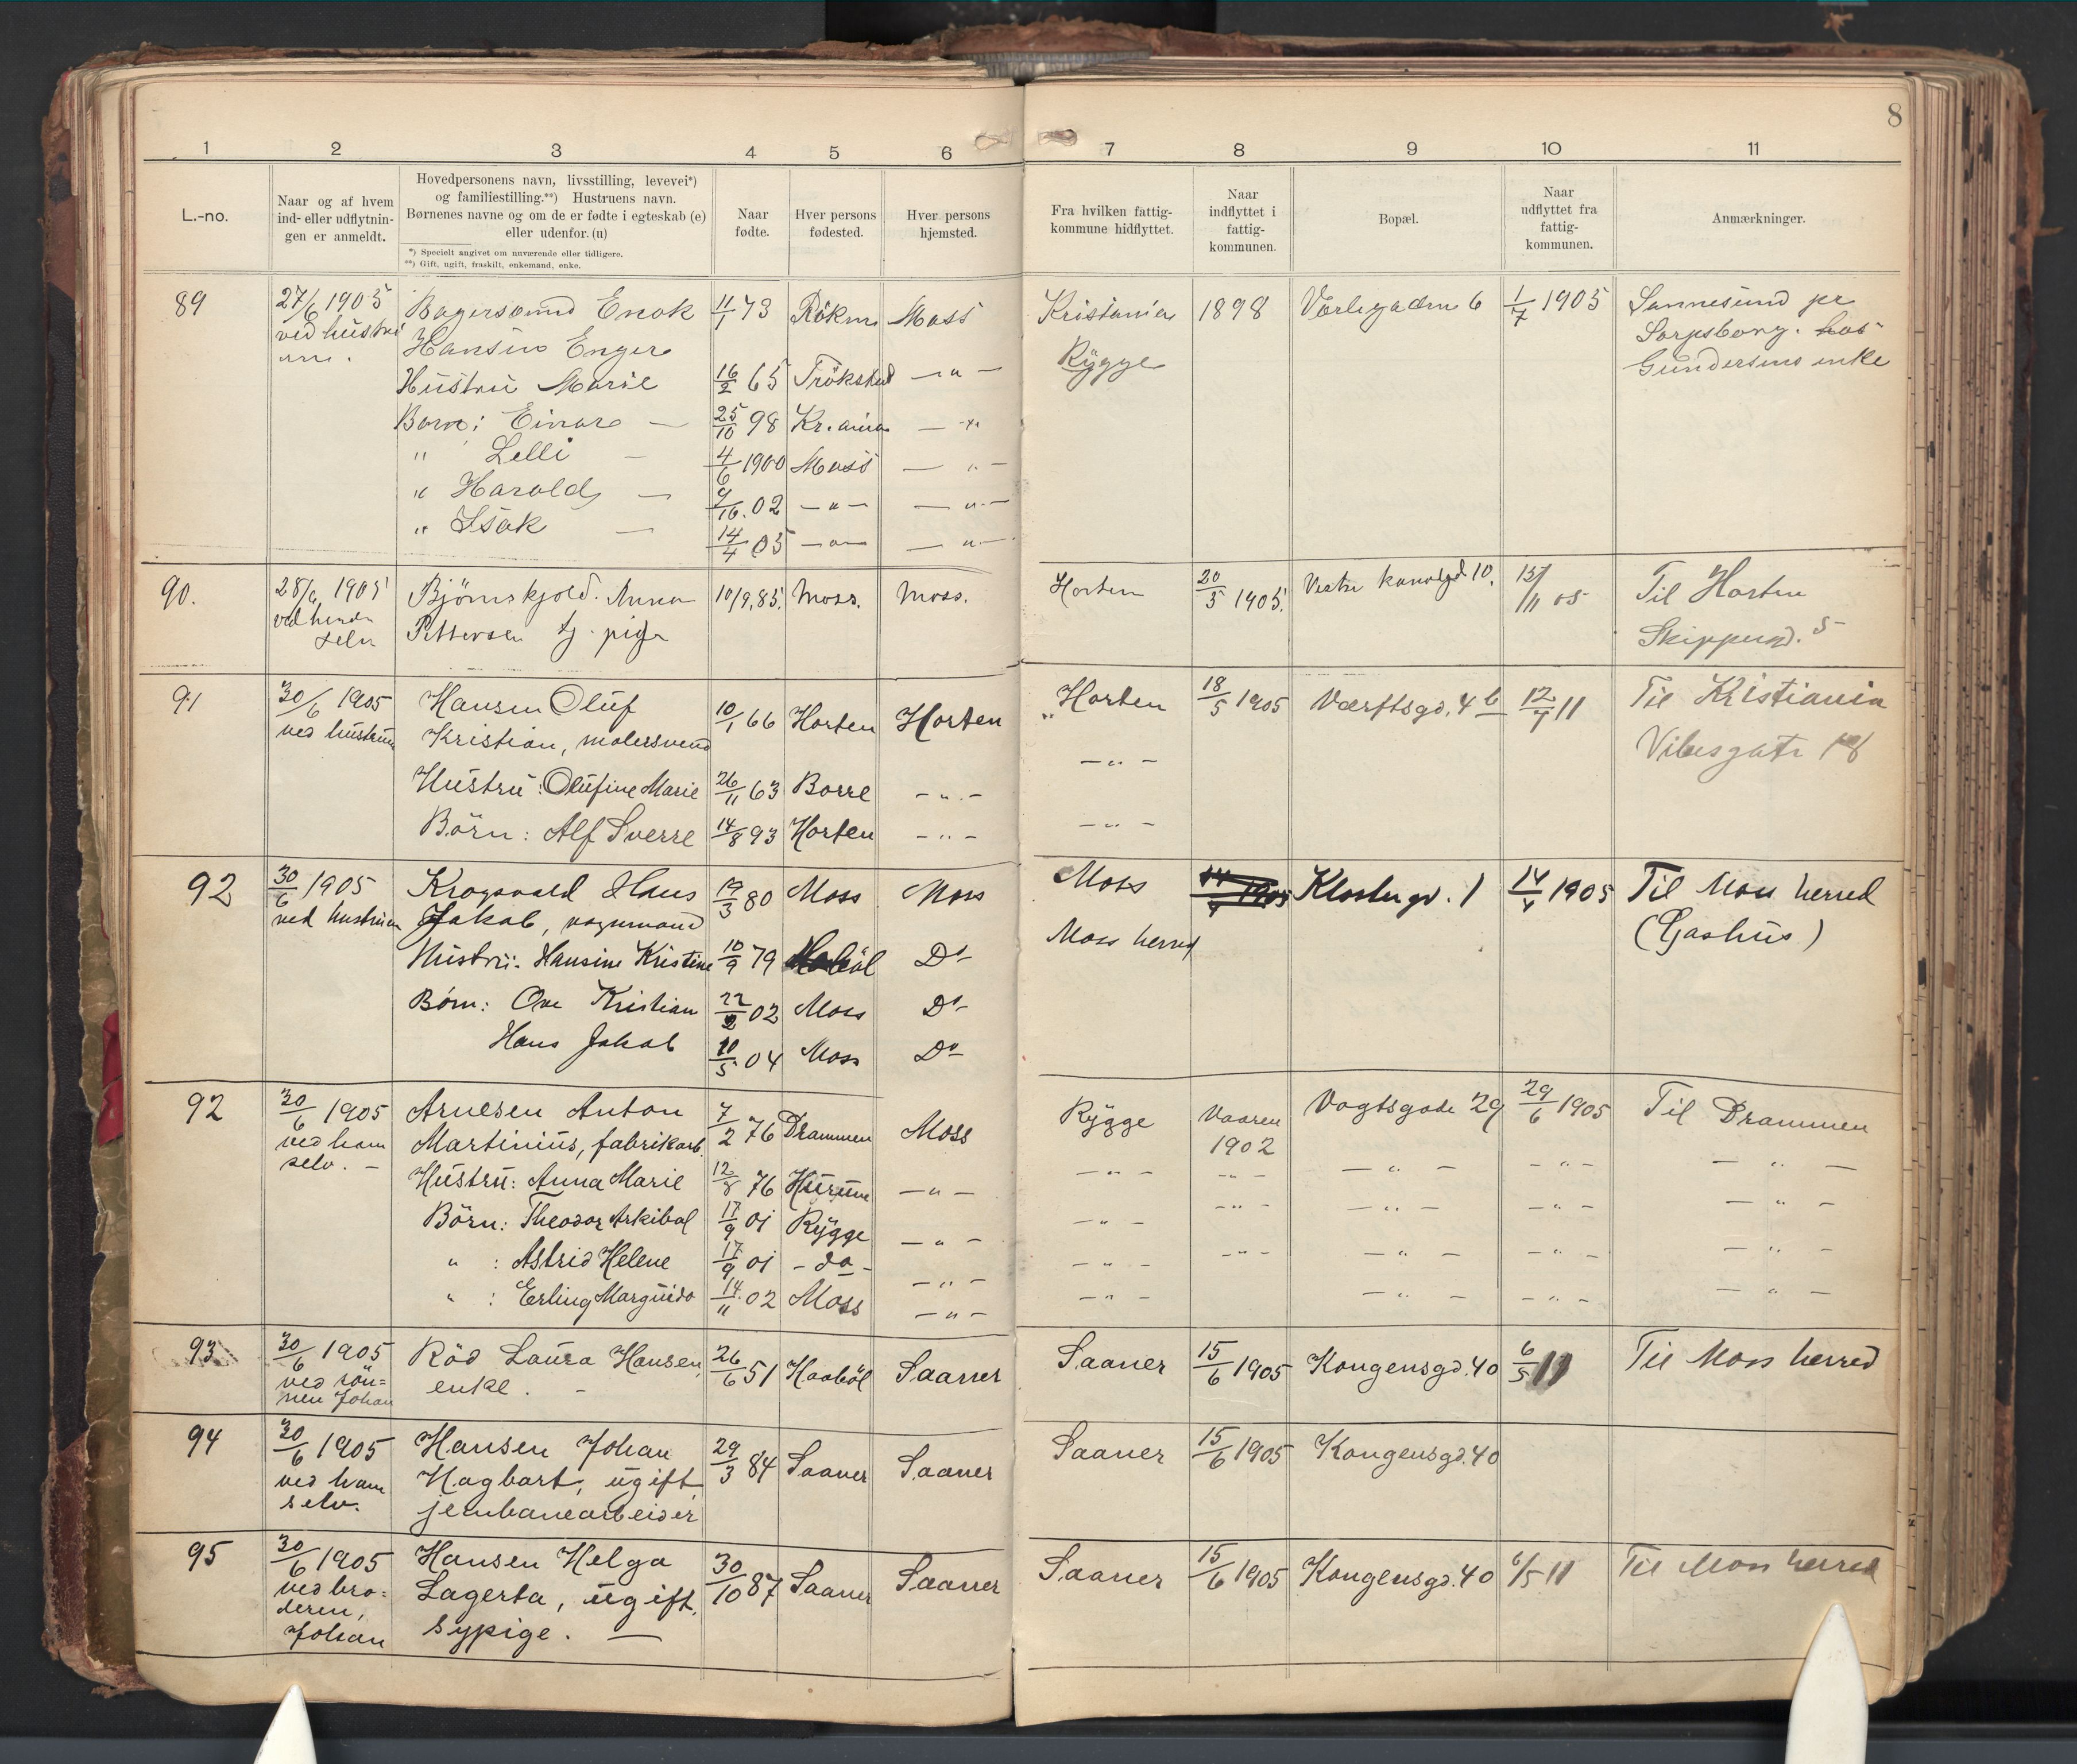 8
1 2 3 4 5 6 7 8 9 10 11
L.-no.
Naar og af hvem
ind- eller udflytnin-
gen er anmeldt.
Hovedpersonens navn, livsstilling, levevei*)
og familiestilling.**) Hustruens navn.
Børnenes navne og om de er fødte i egteskab (e)
eller udenfor. (u)
*) Specielt angivet om nuværende eller tidligere.
**) Gift, ugift, fraskilt, enkemand, enke.
Naar
fødte.
Hver persons
fødested.
Hver persons
hjemsted.
Fra hvilken fattig-
kommune hidflyttet.
Naar
indflyttet i
fattig-
kommunen.
Bopæl.
Naar
udflyttet fra
fattig-
kommunen.
Anmærkninger.
89 27/6 1905 Enok 11/1 73 Moss Kristiania 1898 6 1/7 1905 Sannesund pr
ved hustru Hansen Enger Rygge Sarpsborg. hos
Hustru Marie 16/2 65 Trökstad — " — Gundersens enke
Barn: Einar — 25/10 98 Kr.ania — " —
" Lelli — 4/6 1900 Moss — " —
" Harald — 9/10. 02 — " — — " —
" Isak — 14/4 05 — " — — " —
90. 28/6 1905 Björnskjold. Anna 10/9. 85. Moss. Moss. Horten 20/5 1905. Vestre kanalgd 10. 15/11 05 Til Horten
ved hende Pettersen tj. pige Skippergd. 5
selv
91 30/6 1905 Hansen Oluf 10/1 66 Horten Horten Horten 18/5 1905 Værftsgd. 4 b 12/7 11 Til Kristiania
ved hustruen Kristian, malersvend — " — Vibesgate 18
Hustru: Olufine Marie 26/11 63 Borre — " —
Börn: Alf Sverre 14/8 93 Horten — " — — " —
92 30/6 1905 Krogsvold Hans 19/3 80 Moss Moss Moss 1905 Klostergd. 1 14/4 1905 Til Moss herred
ved hustruen Jakob, vognmand Moss herred (Gashus)
Hustru: Hansine Kristine 10/9 79 Do
Börn: Ove Kristian 22/2 02 Moss Do
Hans Jakob 10/5 04 Moss Do
92 30/6 1905 Arnesen Anton 7/2 76 Drammen Moss Rygge Vaaren 1902 Vogtsgade 29 29/6 1905 Til Drammen
ved ham Martinius, fabrikarb.
selv. —
Hustru: Anna Marie 12/8 76 Hurum — " — — " — — " — — " — — " — — " —
Börn: Theodor Arkibal 17/9 01 Rygge — " — — " — — " — — " — — " — — " —
" : Astrid Helene 17/9 01 - do - — " — — " — — " — — " — — " — — " —
" : Erling Margüido 14/11 02 Moss — " — — " — — " — — " — — " —
93 30/6 1905 Röd Laura Hansen, 26/6 51 Haaböl Saaner Saaner 15/6 1905 Kongensgd. 40 6/5 11 Til Moss herred
ved sön= enke. -
nen Johan
94 30/6 1905 Hansen Johan 29/3 84 Saaner Saaner Saaner 15/6 1905 Kongensgd. 40
ved ham Hagbart, ugift,
selv. jernbanearbeider
95 30/6 1905 Hansen Helga 30/10 87 Saaner Saaner Saaner 15/6 1905 Kongensgd. 40 6/5 11 Til Moss herred
ved bro= Lagerta, ugift,
deren, sypige. —
Johan